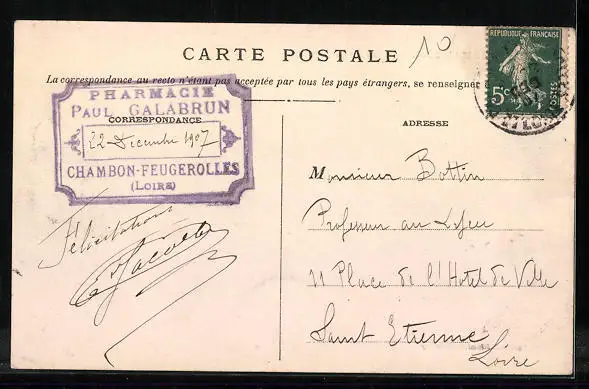 CARTE POSTALE
10
La correspondance au recto n'étant pas acceptée par tous les pays étrangers, se renseigner
REPUBLIQUE FRANÇAISE
5c
POSTES
PHARMACIE
PAUL GALABRUN
CORRESPONDANCE
22 Decembre 1907
CHAMBON-FEUGEROLLES
(LOIRE)
Félicitations
ADRESSE
Monsieur Bottin
Professeur au Lycée
11 Place de l'Hotel de Ville
Saint Etienne
Loire